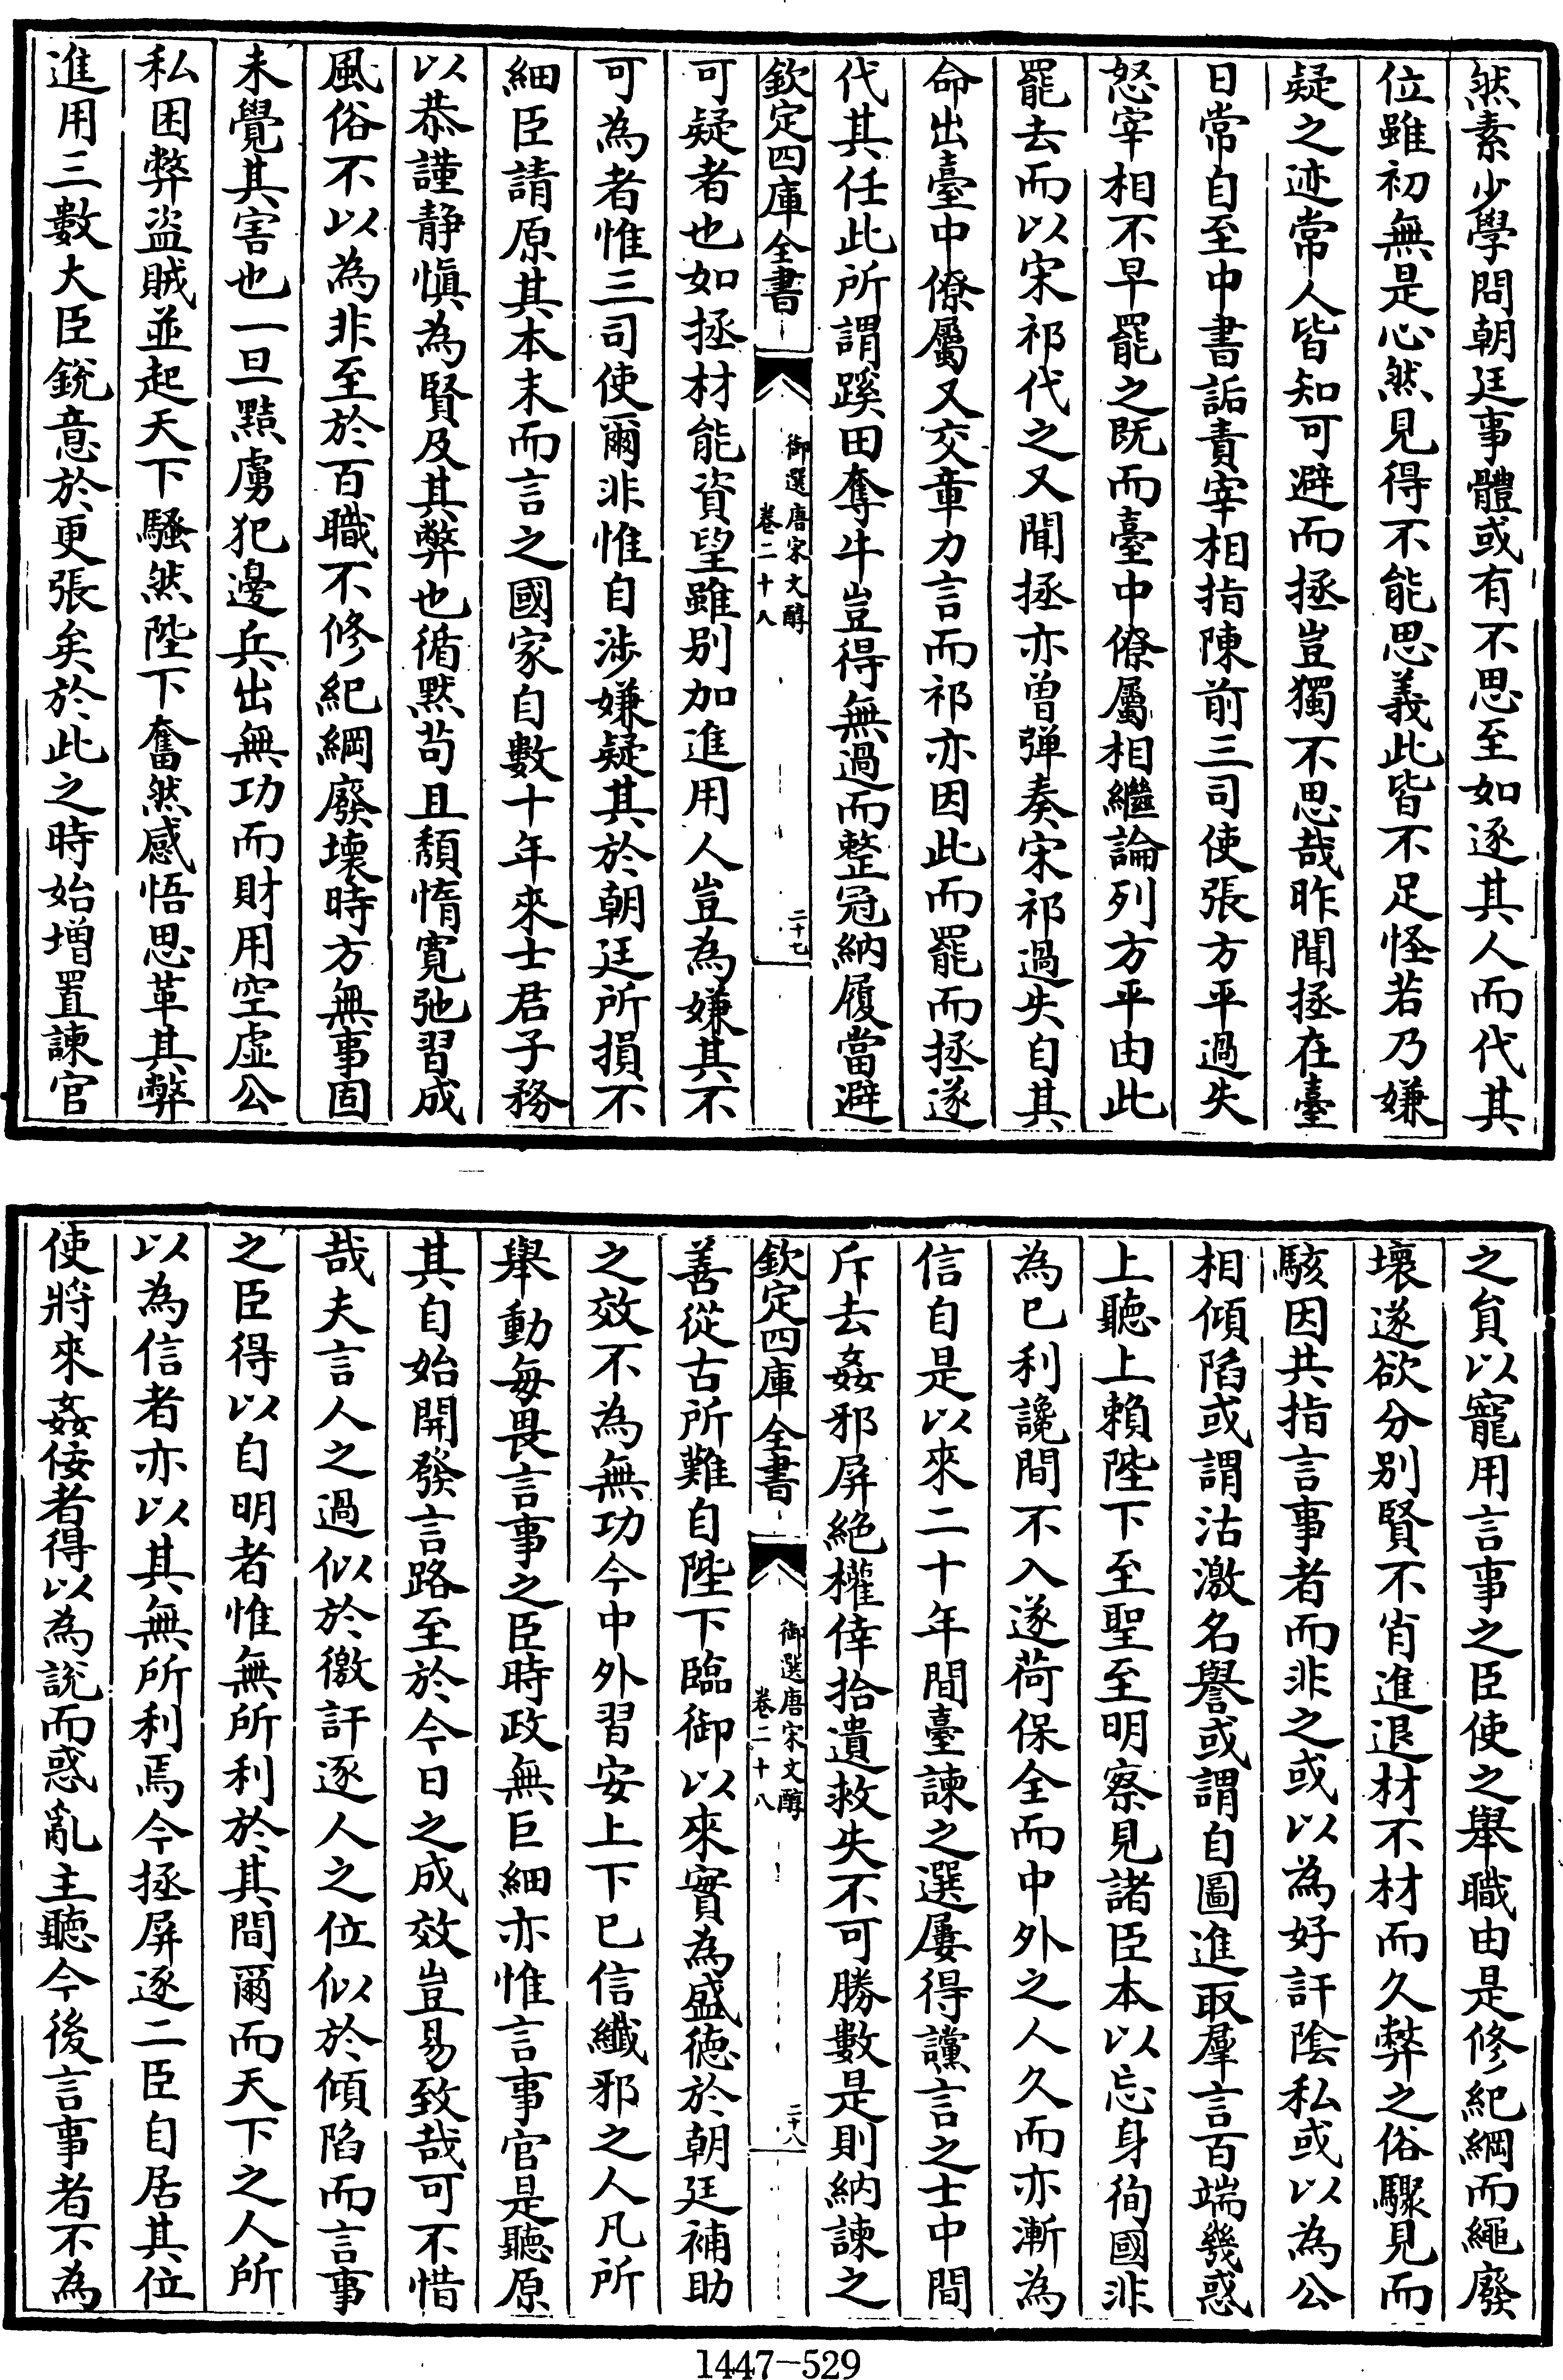 然素少學問朝廷事體或有不思至如逐其人而代其
位雖初無是心然見得不能思義此皆不足怪若乃嫌
疑之迹常人皆知可避而拯豈獨不思哉昨聞拯在臺
日常自至中書詬責宰相指陳前三司使張方平過失
怒宰相不早罷之既而臺中僚屬相繼論列方平由此
罷去而以宋祁代之又聞拯亦曾彈奏宋祁過失自其
命出臺中僚屬又交章力言而祁亦因此而罷而拯遂
代其任此所謂蹊田奪牛豈得無過而整冠納履當避
欽定四庫全書
御選唐宋文醇
卷二十八
二十七
可疑者也如拯材能資望雖別加進用人豈為嫌其不
可為者惟三司使爾非惟自涉嫌疑其於朝廷所損不
細臣請原其本末而言之國家自數十年來士君子務
以恭謹靜愼為賢及其弊也循默茍且頽惰寛弛習成
風俗不以為非至於百職不修紀綱廢壞時方無事固
未覺其害也一旦黠虜犯邊兵出無功而財用空虛公
私困弊盜賊並起天下騷然陛下奮然感悟思革其弊
進用三數大臣銳意於更張矣於此之時始增置諫官
之員以寵用言事之臣使之舉職由是修紀綱而繩廢
壞遂欲分別賢不肖進退材不材而久弊之俗驟見而
駭因共指言事者而非之或以為好訐陰私或以為公
相傾陷或謂沽激名譽或謂自圖進取羣言百端幾惑
上聽上賴陛下至聖至明察見諸臣本以忘身徇國非
為已利讒間不入遂荷保全而中外之人久而亦漸為
信自是以來二十年間臺諫之選屢得讜言之士中間
斥去姦邪屏絶權倖拾遺救失不可勝數是則納諫之
欽定四庫全書
御選唐宋文醇
卷二十八
二十八
善從古所難自陛下臨御以來實為盛徳於朝廷補助
之效不為無功今中外習安上下已信纎邪之人凡所
舉動每畏言事之臣時政無巨細亦惟言事官是聽原
其自始開發言路至於今日之成效豈易致哉可不惜
哉夫言人之過似於徼訐逐人之位似於傾陷而言事
之臣得以自明者惟無所利於其間爾而天下之人所
以為信者亦以其無所利焉今拯屏逐二臣自居其位
使將來姦佞者得以為説而惑亂主聽今後言事者不為
1447-529